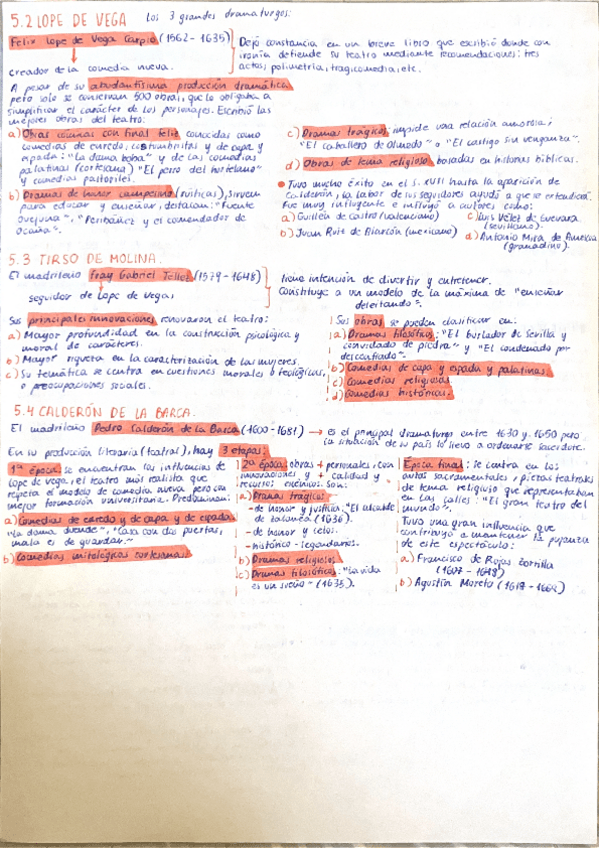 5.2 LOPE DE VEGA Los 3 grandes dramaturgos:
Felix Lope de Vega Carpio (1562-1635)
creador de la comedia nueva.
Dejó constancia en un breve libro que escribió donde con
ironía defiende su teatro mediante recomendaciones: tres
actos, polimetría, tragicomedia, etc.
A pesar de su abundantísima producción dramática,
pero solo se conservan 500 obras, que lo obligaba a
simplificar el carácter de los personajes. Escribió las
mejores obras del teatro:
a) Obras cómicas con final feliz conocidas como
comedias de enredo, costumbristas y de capa y
espada: "La dama boba" y de las comedias
palatinas (cortesana) "El perro del hortelano"
y comedias pastoriles.
b) Dramas de honor campesino (rústicas), sirven
para educar y enseñar, destacan: "Fuente
Ovejuna", "Peribáñez y el comendador de
Ocaña".
c) Dramas trágicos: impide una relación amorosa:
"El caballero de Olmedo" o "El castigo sin venganza".
d) Obras de tema religioso, basadas en historias bíblicas.
• Tuvo mucho éxito en el S. XVII hasta la aparición de
Calderón, la labor de los seguidores ayudó a que se extendiera.
Fue muy influyente e influyó a autores como:
a) Guillén de Castro (valenciano)
b) Juan Ruiz de Alarcón (mexicano)
c) Luis Vélez de Guevara.
(sevillano).
d) Antonio Mira de Amescua
(granadino).
5.3 TIRSO DE MOLINA.
El madrileño fray Gabriel Téllez (1579-1648)
seguidor de Lope de Vega
tiene intención de divertir y entretener.
Constituye a un modelo de la máxima de "enseñar
deleitando".
Sus principales innovaciones renovaron el teatro:
a) Mayor profundidad en la construcción psicológica y
moral de carácteres.
b) Mayor riqueza en la caracterización de las mujeres.
c) Su temática se centra en cuestiones morales o teológicas,
o preocupaciones sociales.
Sus obras se pueden clasificar en:
a) Dramas filosóficos: "El burlador de Sevilla y
convidado de piedra" y "El condenado por
desconfiado".
b) Comedias de capa y espada y palatinas.
c) Comedias religiosas
d) Comedias históricas.
5.4 CALDERÓN DE LA BARCA.
El madrileño Pedro Calderón de la Barca (1600-1681) → es el principal dramaturgo entre 1630 y 1650 pero
la situación de su país lo llevó a ordenarse sacerdote.
En su producción literaria (teatral), hay 3 etapas:
1ª época: se encuentran las influencias de
Lope de Vega, el teatro más realista que
respeta el modelo de comedia nueva pero con
mejor formación universitaria. Predominan:
a) Comedias de enredo y de capa y de espada:
"La dama duende", "Casa con dos puertas,
mala es de guardar."
b) Comedias mitológicas cortesanas.
2ª Época: obras + personales, con
innovaciones y + calidad y
recursos escénicos. Son:
a) Drama trágico:
- de honor y justicia: "El alcalde
de Zalamea" (1636).
- de honor y celos.
- histórico-legendarios.
b) Dramas religiosos
c) Dramas filosóficos: "La vida
es un sueño" (1635).
Época final: se centra en los
autos sacramentales, piezas teatrales
de tema religioso que representaban
en las calles: "El gran teatro del
mundo".
Tuvo una gran influencia que
contribuyó a mantener la pujanza
de este espectáculo:
a) Francisco de Rojas Zorrilla
(1607-1648)
b) Agustín Moreto (1618-1669)